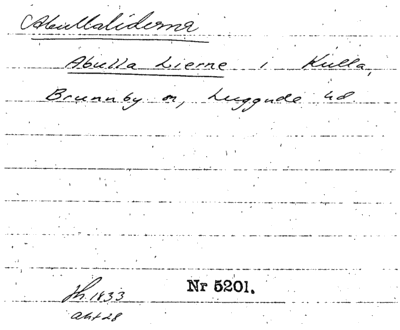 Abullaliderna
Abulla Lierne i Kulla,
Brunnby sn, Luggude hd
Nr 5201.
Jh. 1833
akt 28